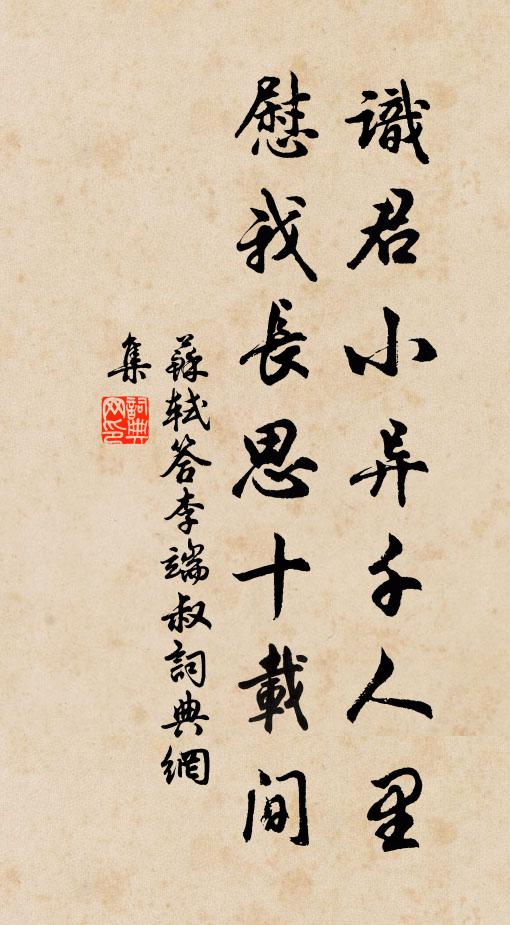 識君小异千人里
慰我長思十載间
蘇軾答李端叔詞典網
集
詞典
网印